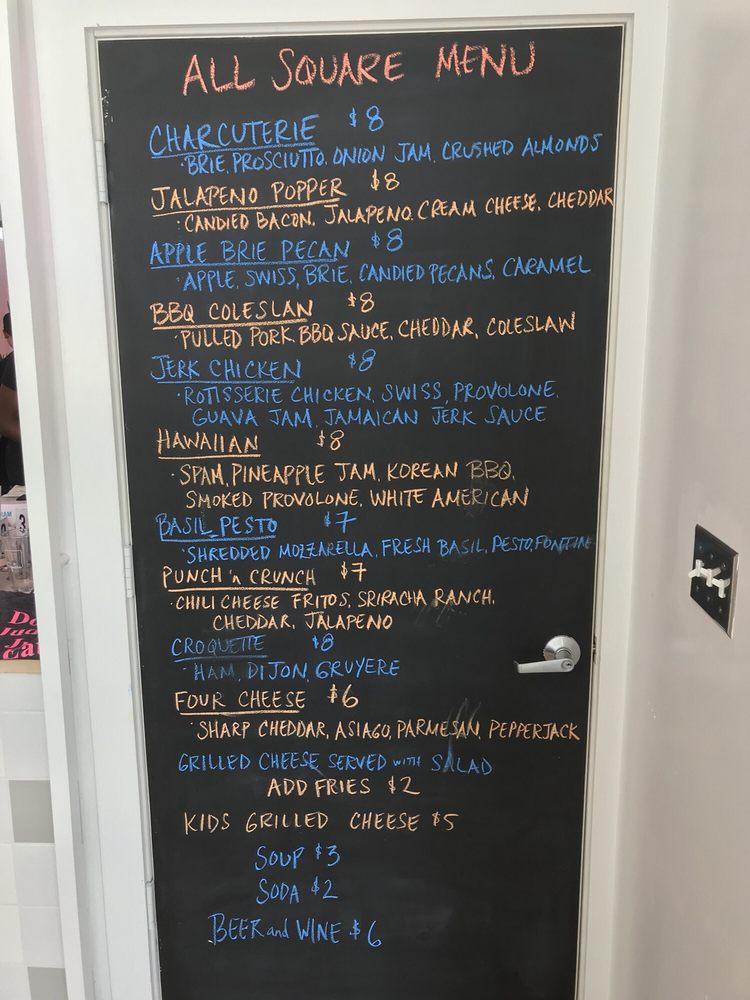 ALL SQUARE MENU
CHARCUTERIE $8
·BRIE, PROSCIUTTO, ONION JAM, CRUSHED ALMONDS
JALAPENO POPPER $8
·CANDIED BACON, JALAPENO, CREAM CHEESE, CHEDDAR
APPLE BRIE PECAN $8
·APPLE, SWISS, BRIE, CANDIED PECANS, CARAMEL
BBQ COLESLAN $8
·PULLED PORK, BBQ SAUCE, CHEDDAR, COLESLAW
JERK CHICKEN $8
·ROTISSERIE CHICKEN, SWISS, PROVOLONE,
GUAVA JAM, JAMAICAN JERK SAUCE
HAWAIIAN $8
·SPAM, PINEAPPLE JAM, KOREAN BBQ,
SMOKED PROVOLONE, WHITE AMERICAN
BASIL PESTO $7
·SHREDDED MOZZARELLA, FRESH BASIL, PESTO, FONTINA
PUNCH 'n CRUNCH $7
·CHILI CHEESE FRITOS, SRIRACHA RANCH,
CHEDDAR, JALAPENO
CROQUETTE $8
·HAM, DIJON, GRUYERE
FOUR CHEESE $6
·SHARP CHEDDAR, ASIAGO, PARMESAN, PEPPERJACK
GRILLED CHEESE SERVED WITH SALAD
ADD FRIES $2
KIDS GRILLED CHEESE $5
SOUP $3
SODA $2
BEER and WINE $6